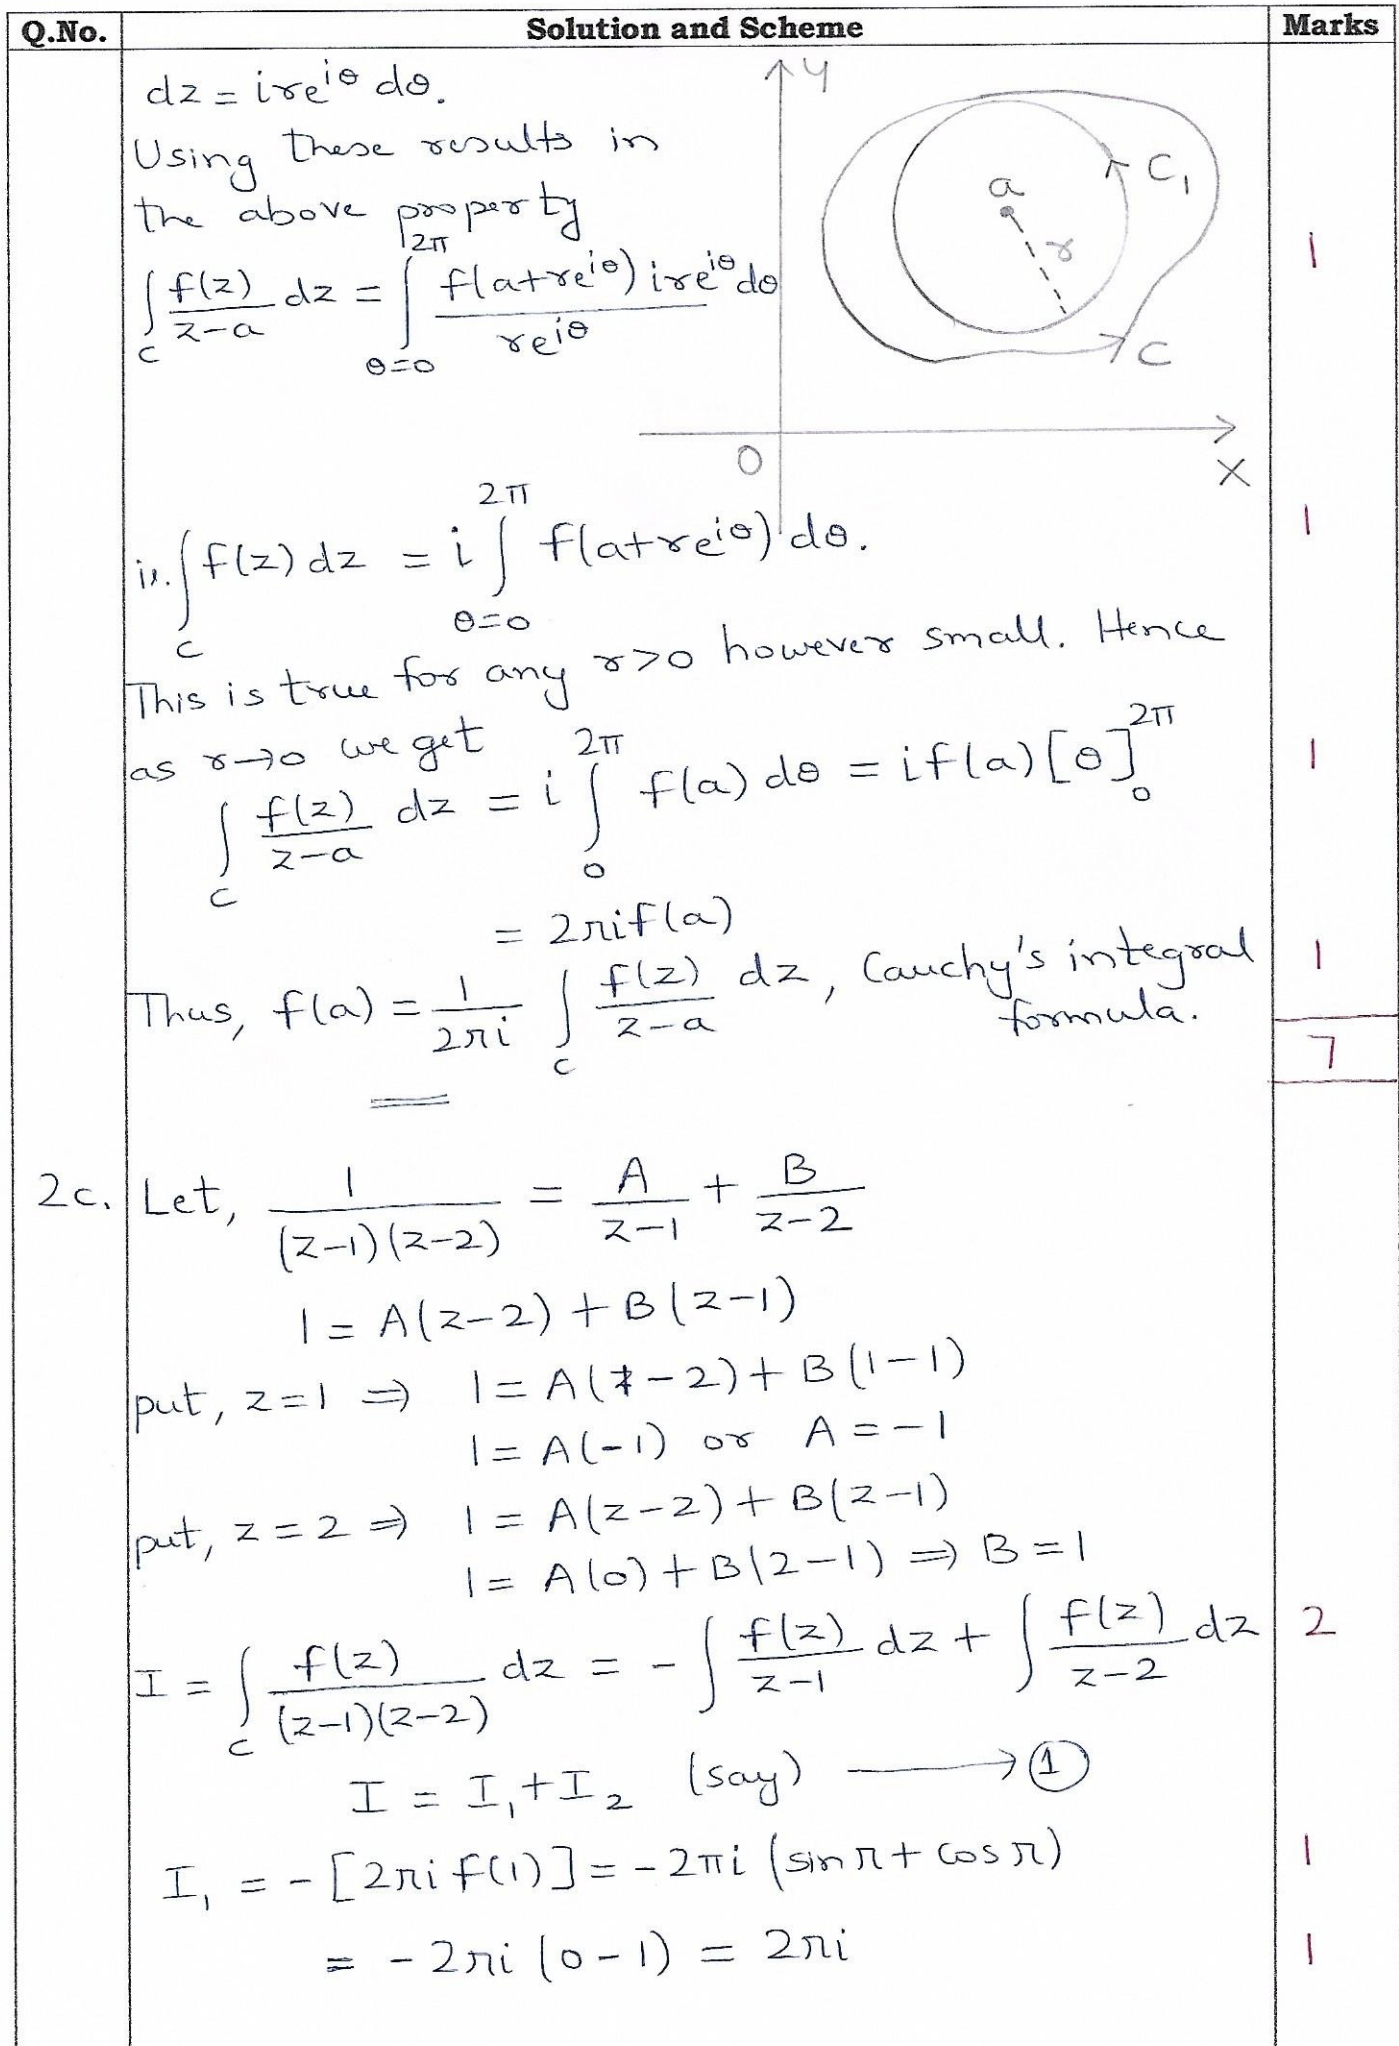 Q.No. Solution and Scheme Marks
dz = ire^{iθ} dθ.
Using these results in
the above property
∫_C f(z)/(z-a) dz = ∫_{θ=0}^{2π} f(a+re^{iθ}) ire^{iθ} dθ / re^{iθ} 1
Y
a
r
C₁
C
O
X
ie. ∫_C f(z) dz = i ∫_{θ=0}^{2π} f(a+re^{iθ}) dθ. 1
This is true for any r>0 however small. Hence
as r→0 we get
∫_C f(z)/(z-a) dz = i ∫_0^{2π} f(a) dθ = i f(a) [θ]_0^{2π} 1
= 2πi f(a)
Thus, f(a) = 1/(2πi) ∫_C f(z)/(z-a) dz, Cauchy's integral 1
formula.
7
2c. Let, 1/((z-1)(z-2)) = A/(z-1) + B/(z-2)
1 = A(z-2) + B(z-1)
put, z=1 ⇒ 1 = A(1-2) + B(1-1)
1 = A(-1) or A = -1
put, z=2 ⇒ 1 = A(z-2) + B(z-1)
1 = A(0) + B(2-1) ⇒ B = 1
I = ∫_C f(z)/((z-1)(z-2)) dz = - ∫ f(z)/(z-1) dz + ∫ f(z)/(z-2) dz 2
I = I₁ + I₂ (say) → ①
I₁ = -[2πi f(1)] = -2πi (sin π + cos π) 1
= -2πi (0-1) = 2πi 1